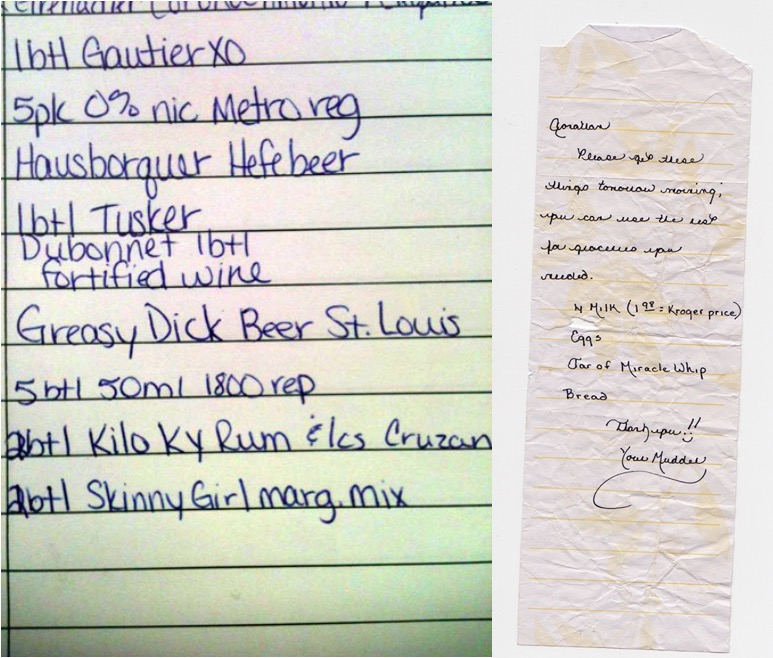 1btl Gautier XO
5pk 0% nic Metro reg
Hausborquer Hefe beer
1btl Tusker
Dubonnet 1btl
fortified wine
Greasy Dick Beer St. Louis
5btl 50ml 1800 rep
2btl Kilo Ky Rum & 1cs Cruzan
2btl Skinny Girl marg. mix
Please get these
things tomorrow morning;
you can use the rest
for groceries you
needed.
Milk (1 98 = Kroger price)
Eggs
Jar of Miracle Whip
Bread
Thank you!!
Your Mudder